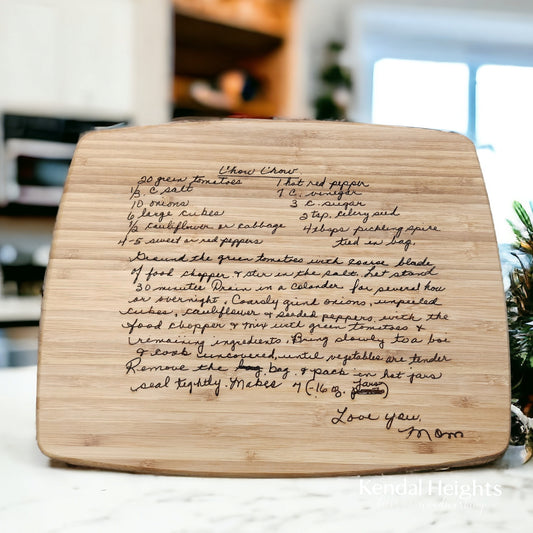 Chow Chow
20 green tomatoes 1 hot red pepper
1/2 c salt 7 c. vinegar
10 onions 3 c. sugar
6 large cukes 2 tsp. celery seed
1/2 cauliflower or cabbage 4 tbsps pickling spice
4-5 sweet or red peppers tied in bag.
Ground the green tomatoes with coarse blade
of food chopper & stir in the salt. Let stand
30 minutes Drain in a colander for several hour
or overnight. Coarsly grind onions, unpeeled
cukes, cauliflower & seeded peppers, with the
food chopper & mix with green tomatoes &
remaining ingredients. Bring slowly to a boi
& cook uncovered, until vegetables are tender
Remove the bag, & pack in hot jars
seal tightly. Makes 7 (-16 oz. Jars)
Love you,
Mom
Kendal Heights